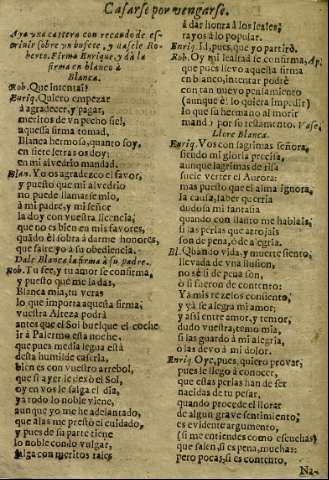 Casarse por vengarse.
Aya vna cartera con recaudo de es-
criuir sobre vn bufete, y dasele Ro-
berto. Firma Enrique, y dà la
firma en blanco à
Blanca.
Rob. Que intentas?
Enriq. Quiero empezar
à agradecer, y pagar,
meritos de vn pecho fiel,
aquesta firma tomad,
Blanca hermosa, quanto soy,
en siete letras os doy;
en mi alvedrio mandad.
Blan. Yo os agradezco el favor,
y puesto que mi alvedrio
no puede llamarse mio,
à mi padre, y mi señor
la doy con vuestra licencia,
que no es bien en mis favores,
quãdo él sobra à darme honores,
que falte yo à su obediencia.
Dale Blanca la firma à su padre.
Rob. Tu fee, y tu amor se confirma,
y puesto que me la das,
Blanca mia, tu veràs
lo que importa aquesta firma;
vuestra Alteza podrà
antes que el Sol busque el coche
ir à Palermo esta noche,
que pues media legua està
desta humilde caseria,
bien es con vuestro arrebol,
que si ayer le dexò el Sol,
oy en vos le salga el dia,
ya todo lo noble viene,
aunque yo me he adelantado,
que alas me prestò el cuidado,
y pues de su parte tiene
lo noble condo vulgar,
salga con meritos tales
à dar honra à los leales,
rayos à lo popular.
Enriq. Id, pues, que yo partirè.
Rob. Oy mi lealtad se confirma, Ap.
que pues llevo aquesta firma
en blanco, intentar podrè
con tan nuevo pensamiento
(aunque èl lo quiera impedir)
lo que su hermano al morir
mandò por su testamento. Vase.
Llore Blanca.
Enriq. Vos con lagrimas señora,
siendo mi gloria precisa,
aunque lagrimas de risa
sucle verter el Aurora:
mas puesto que el alma ignora,
la causa, saber querria
dudosa mi fantasia
quando con llanto me hablais,
si las perlas que arrojais
son de pena, ò de alegria.
Bl. Quando vida, y muerte siento,
llevada de vna ilusion,
no sè si de pena son,
ò si fueron de contento:
Yà mis rezelos consiento,
y yà se alegra mi amor;
y assi entre amor, y temor,
dudo vuestra, temo mia,
si las guardo à mi alegria,
ò las devo à mi dolor.
Enriq. Oye, pues, quiero provar,
pues le llego à conocer,
que estas perlas han de ser
nacidas de tu pesar,
quando procede el llorar
de algun grave sentimiento,
es evidente argumento,
(si me entiendes como escuchas)
que salen, si es pena, muchas:
pero pocas, si es contento,
Na-